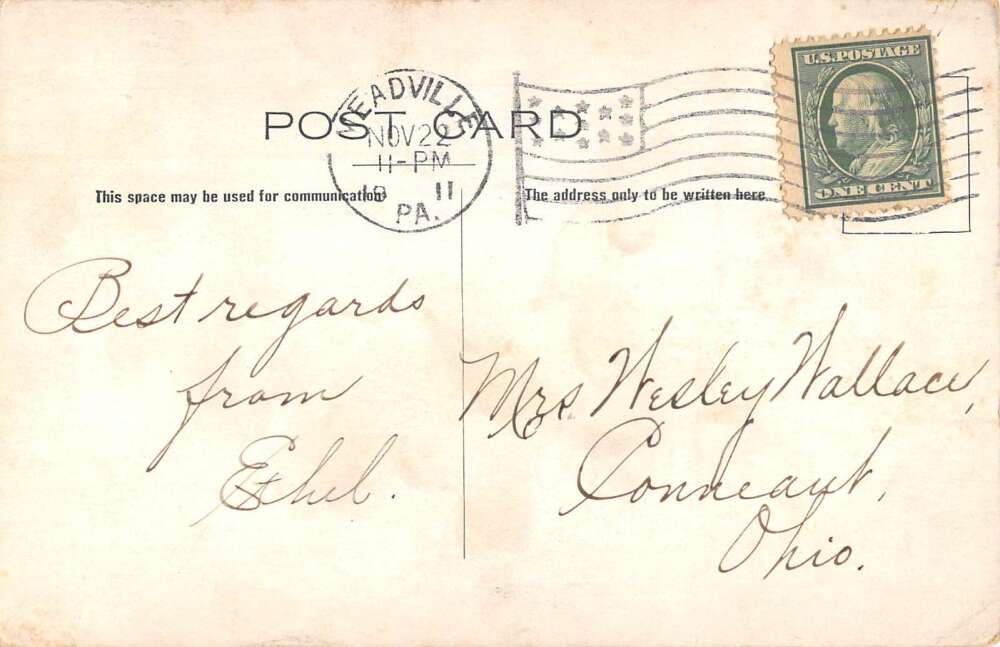 U.S. POSTAGE
ONE CENT
MEADVILLE
NOV 22
11-PM
19 11
PA.
POST CARD
This space may be used for communication
The address only to be written here
Best regards
from
Ethel.
Mrs Wesley Wallace,
Conneaut,
Ohio.